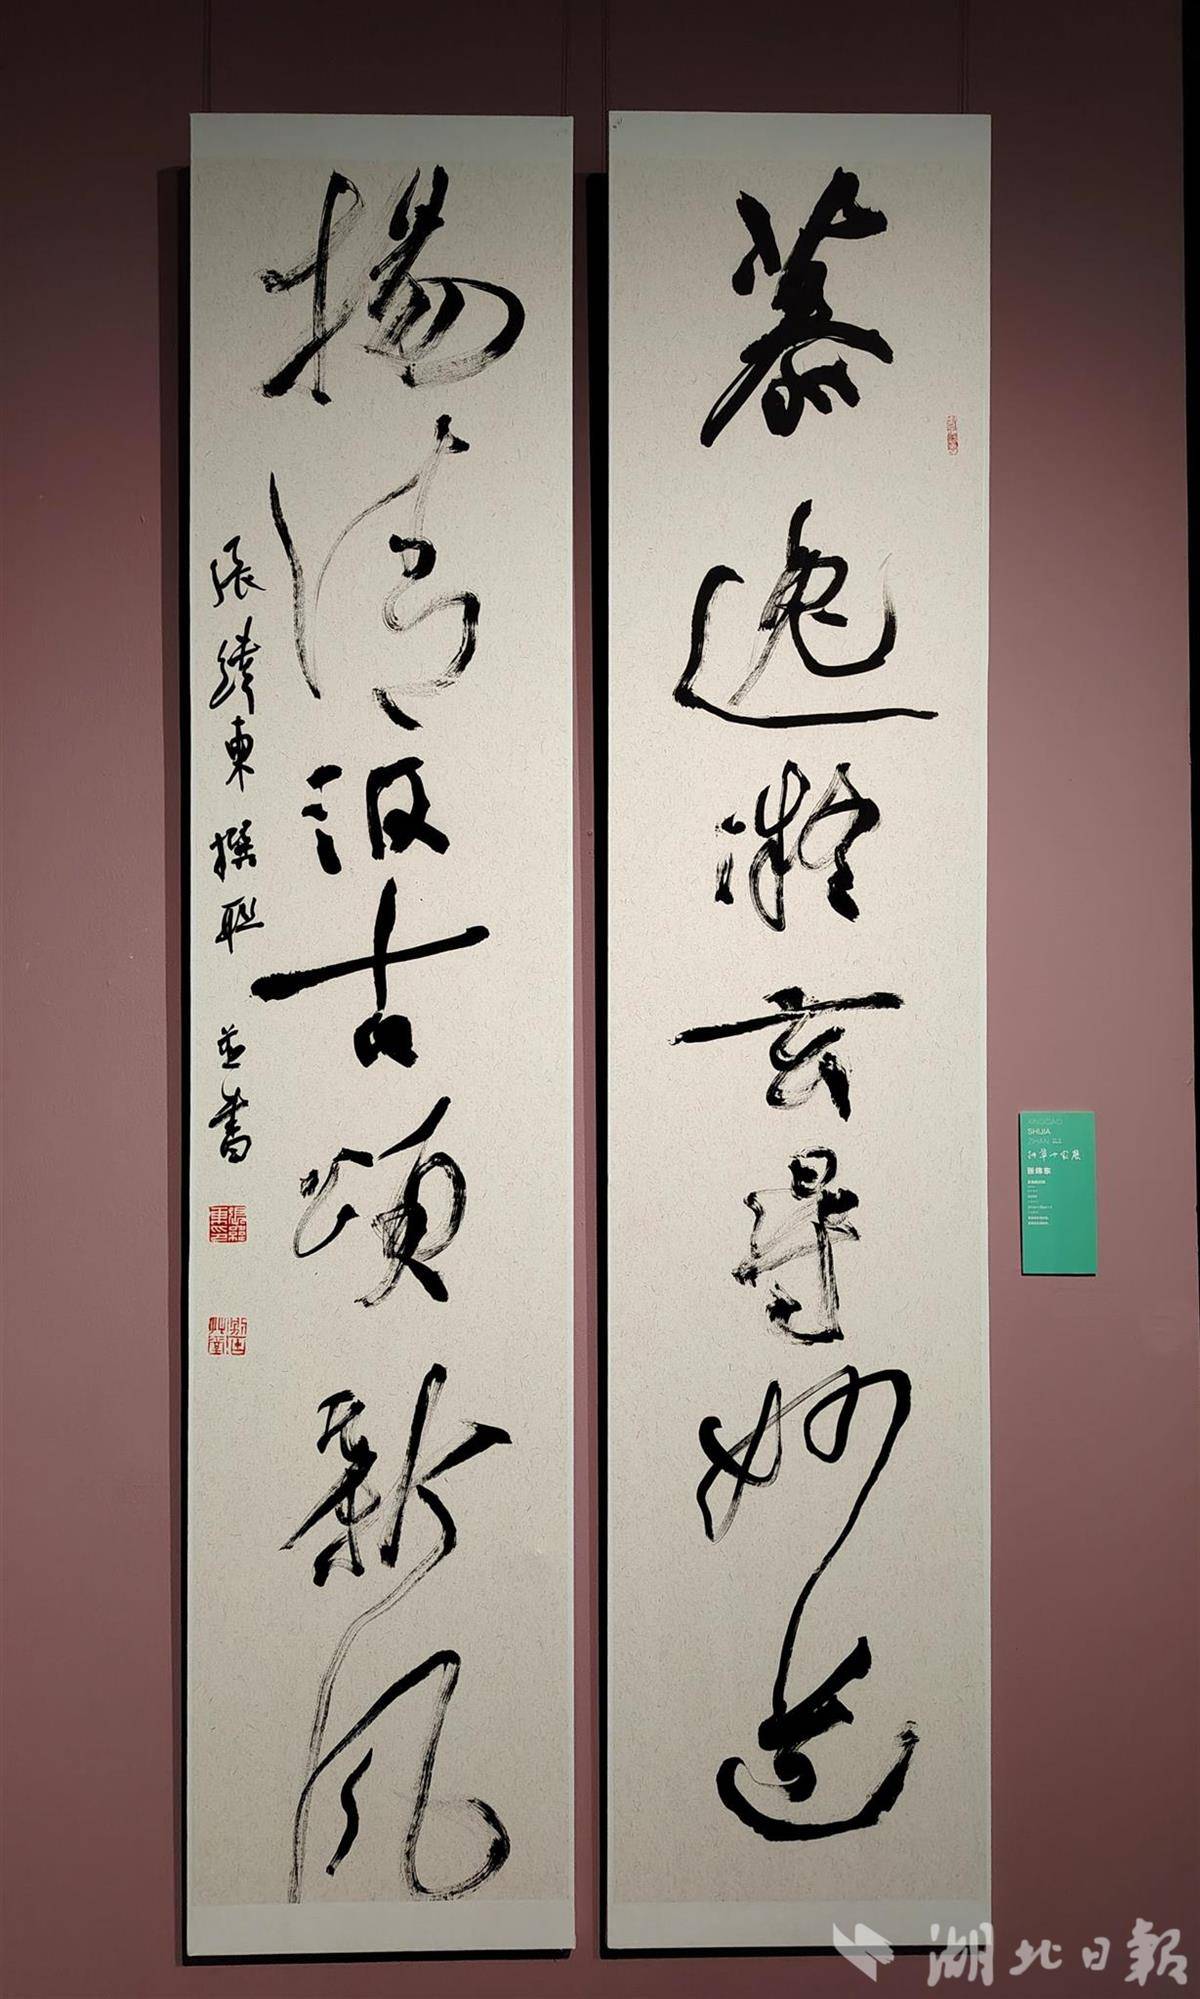 慕逸凝玄尋妙道
揚清汲古頌新風
張緯東撰聯並書
XINGCAO
SHIJIA
ZHAN
行草十家展
张纬东
湖北日報